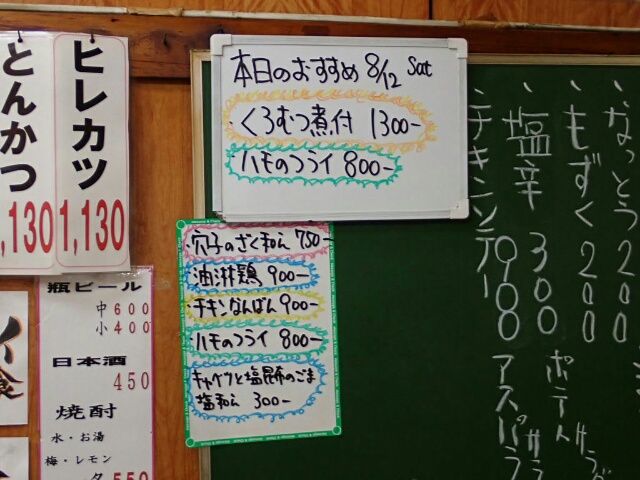 本日のおすすめ 8/12 Sat
・くろむつ煮付 1300-
・ハモのフライ 800-
・穴子のざく和え 750-
・油淋鶏 900-
・チキンなんばん 900-
・ハモのフライ 800-
・キャベツと塩昆布のごま
塩和え 300-
とんかつ
,130
ヒレカツ
1,130
瓶ビール
中600
小400
日本酒
450
焼酎
水・お湯
梅・レモン
550
食
・なっとう 200
・もずく 200
・塩辛 300
・チキンソテー 980
ポテトサラ
アスパラ